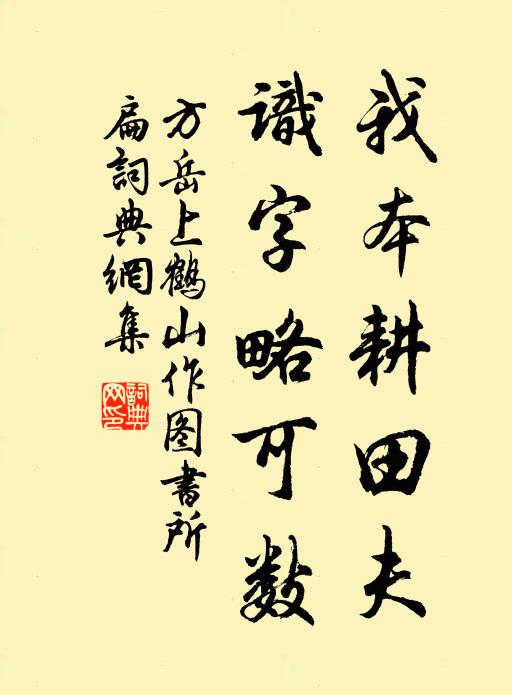 我本耕田夫
识字略可数
方岳上鹤山作图书所
扁词典网集
词典网印